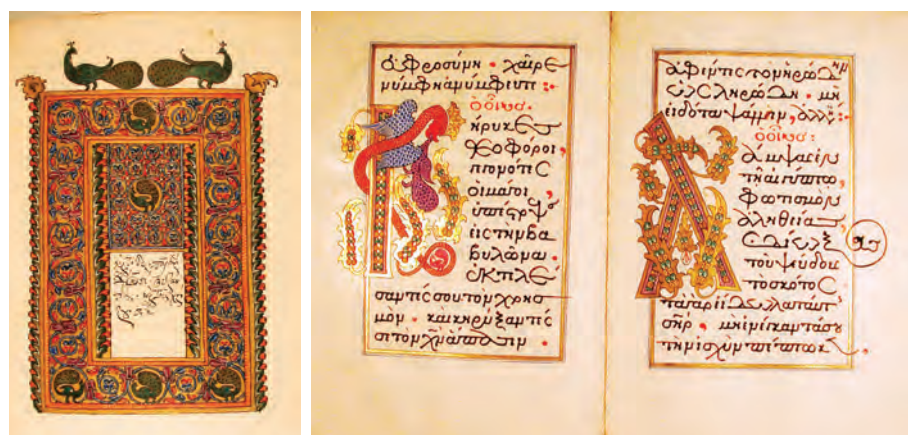 εὐφροσύνη • χαῖρε
νύμφη ἀνύμφευτε :·
ὁ οἶκος:
Κήρυκες
θεοφόροι,
γεγονότες
οἱ μάγοι
ὑπέστρεψ
εἰς τὴν βα
βυλῶνα
ἐκτελέ
σαντές σου τὸν χρησ
μόν • καὶ κηρύξαντές
σε τὸν χν ἅπασιν
ἀφέντες τὸν ἡρώδην
ὡς ληρώδη • μὴ
εἰδότα ψάλλειν, ἀλλη:
ὁ οἶκος:
Λάμψας ἐν
τῇ αἰγύπτω,
φωτισμὸν
ἀληθείας
ἐδίωξας
τοῦ ψεύδους
τὸ σκότος
τὰ γὰρ εἴδωλα ταύτης
σηρ • μὴ ἐνέγκαντά σου
τὴν ἰσχὺν πέπτωκεν